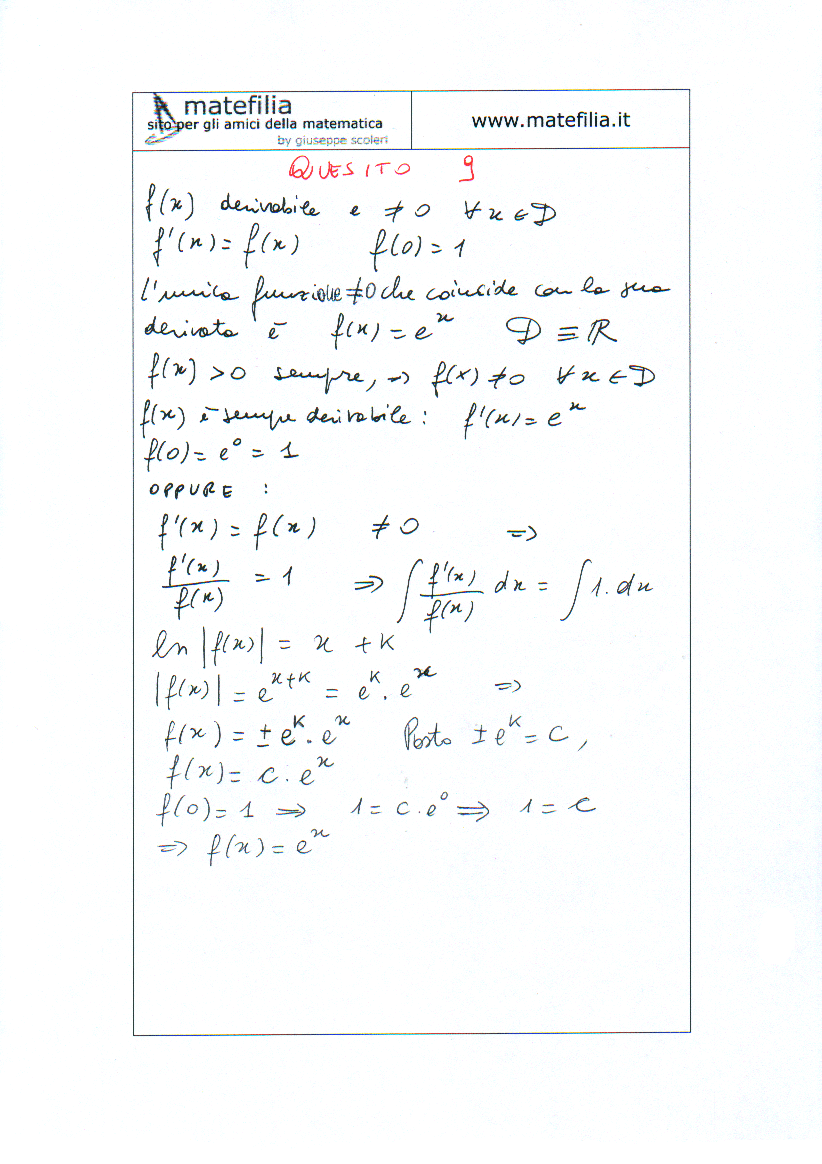 matefilia
sito per gli amici della matematica
by giuseppe scoleri
www.matefilia.it
QUESITO 9
f(x) derivabile e ≠0 ∀x∈D
f'(x)=f(x) f(0)=1
l'unica funzione ≠0 che coincide con la sua
derivata è f(x)=eˣ D≡ℝ
f(x)>0 sempre, ⇒ f(x)≠0 ∀x∈D
f(x) è sempre derivabile: f'(x)=eˣ
f(0)=e⁰=1
OPPURE :
f'(x)=f(x) ≠0 ⇒
f'(x)/f(x) = 1 ⇒ ∫ f'(x)/f(x) dx = ∫1·dx
ln|f(x)| = x + K
|f(x)| = eˣ⁺ᴷ = eᴷ·eˣ ⇒
f(x) = ±eᴷ·eˣ Posto ±eᴷ=c,
f(x)= c·eˣ
f(0)=1 ⇒ 1= c·e⁰ ⇒ 1=c
⇒ f(x)=eˣ